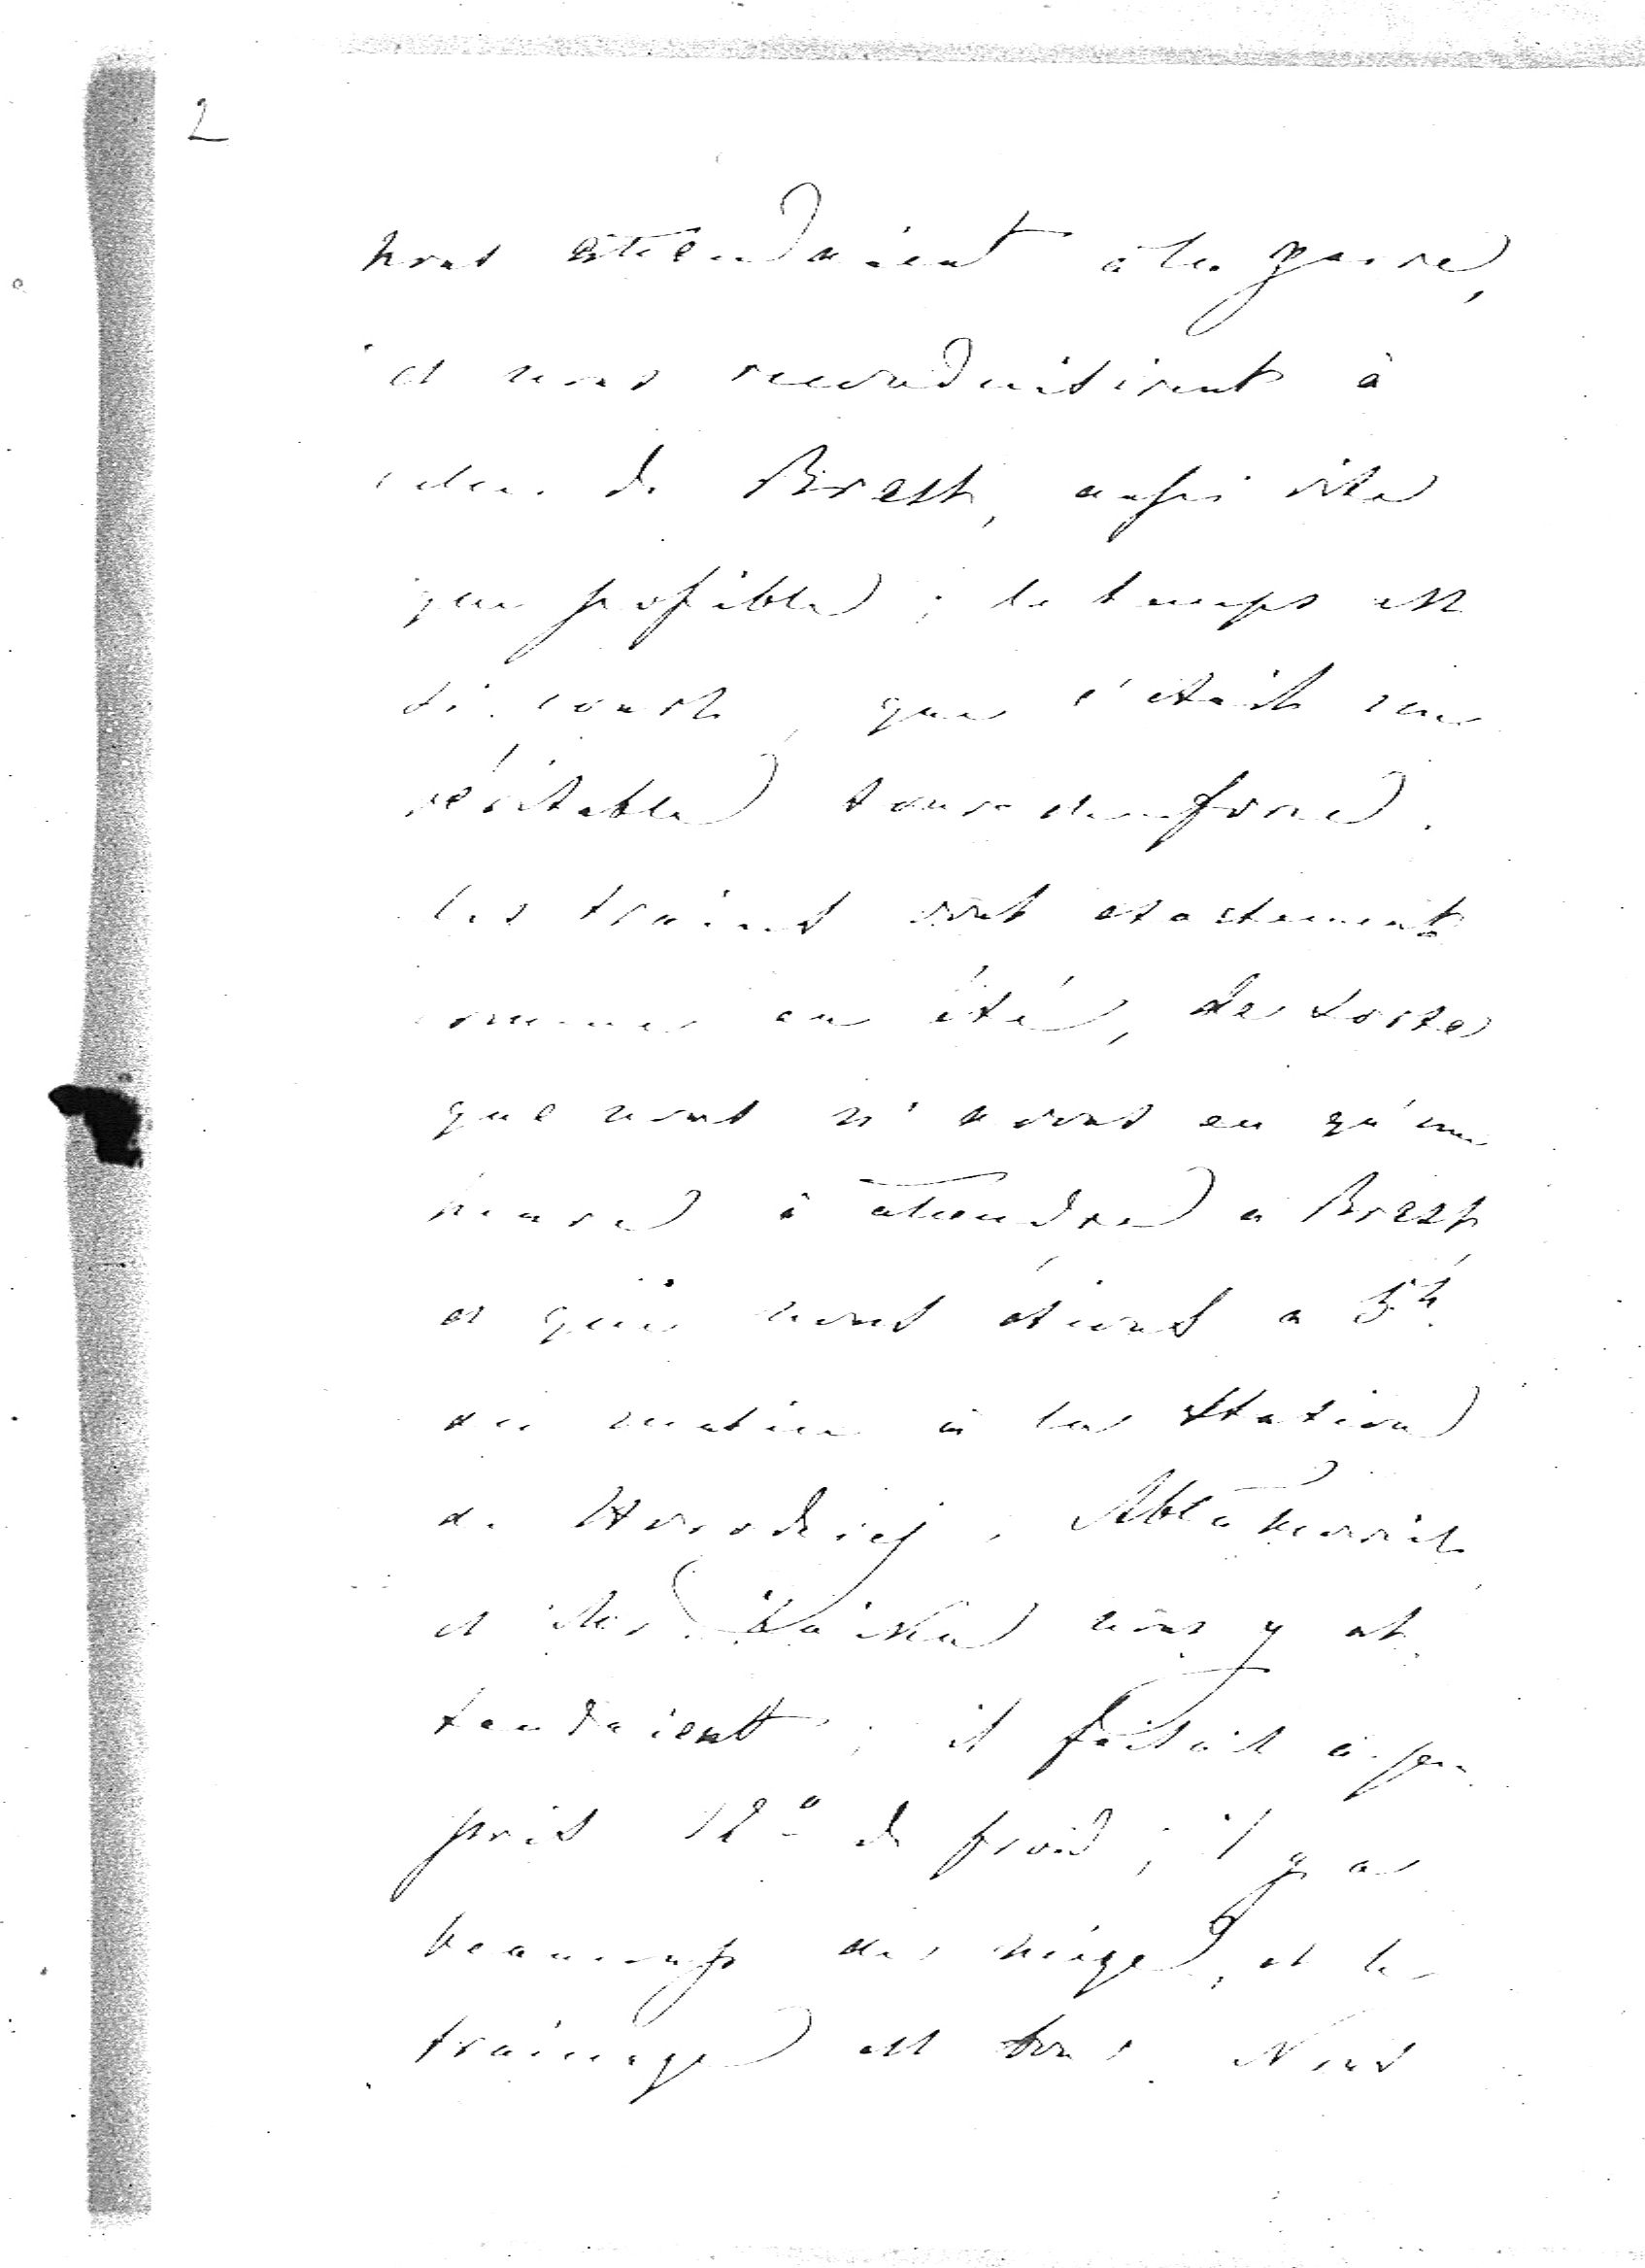 2
nous attendaient à la gare,
et nous reconduisirent à
de Brest, aussi vite
que possible ; le temps est
si court, que c'était un
véritable tour de force.
les trains sont exactement
comme en été, de sorte
que nous n'avons eu qu'une
heure à attendre à Brest
et que nous étions à 5h.
du matin à la station
de
et nous y at
tendaient ; il faisait à peu
près 12° de froid ; il y a
beaucoup de neige, et le
traînage est bon. Nous